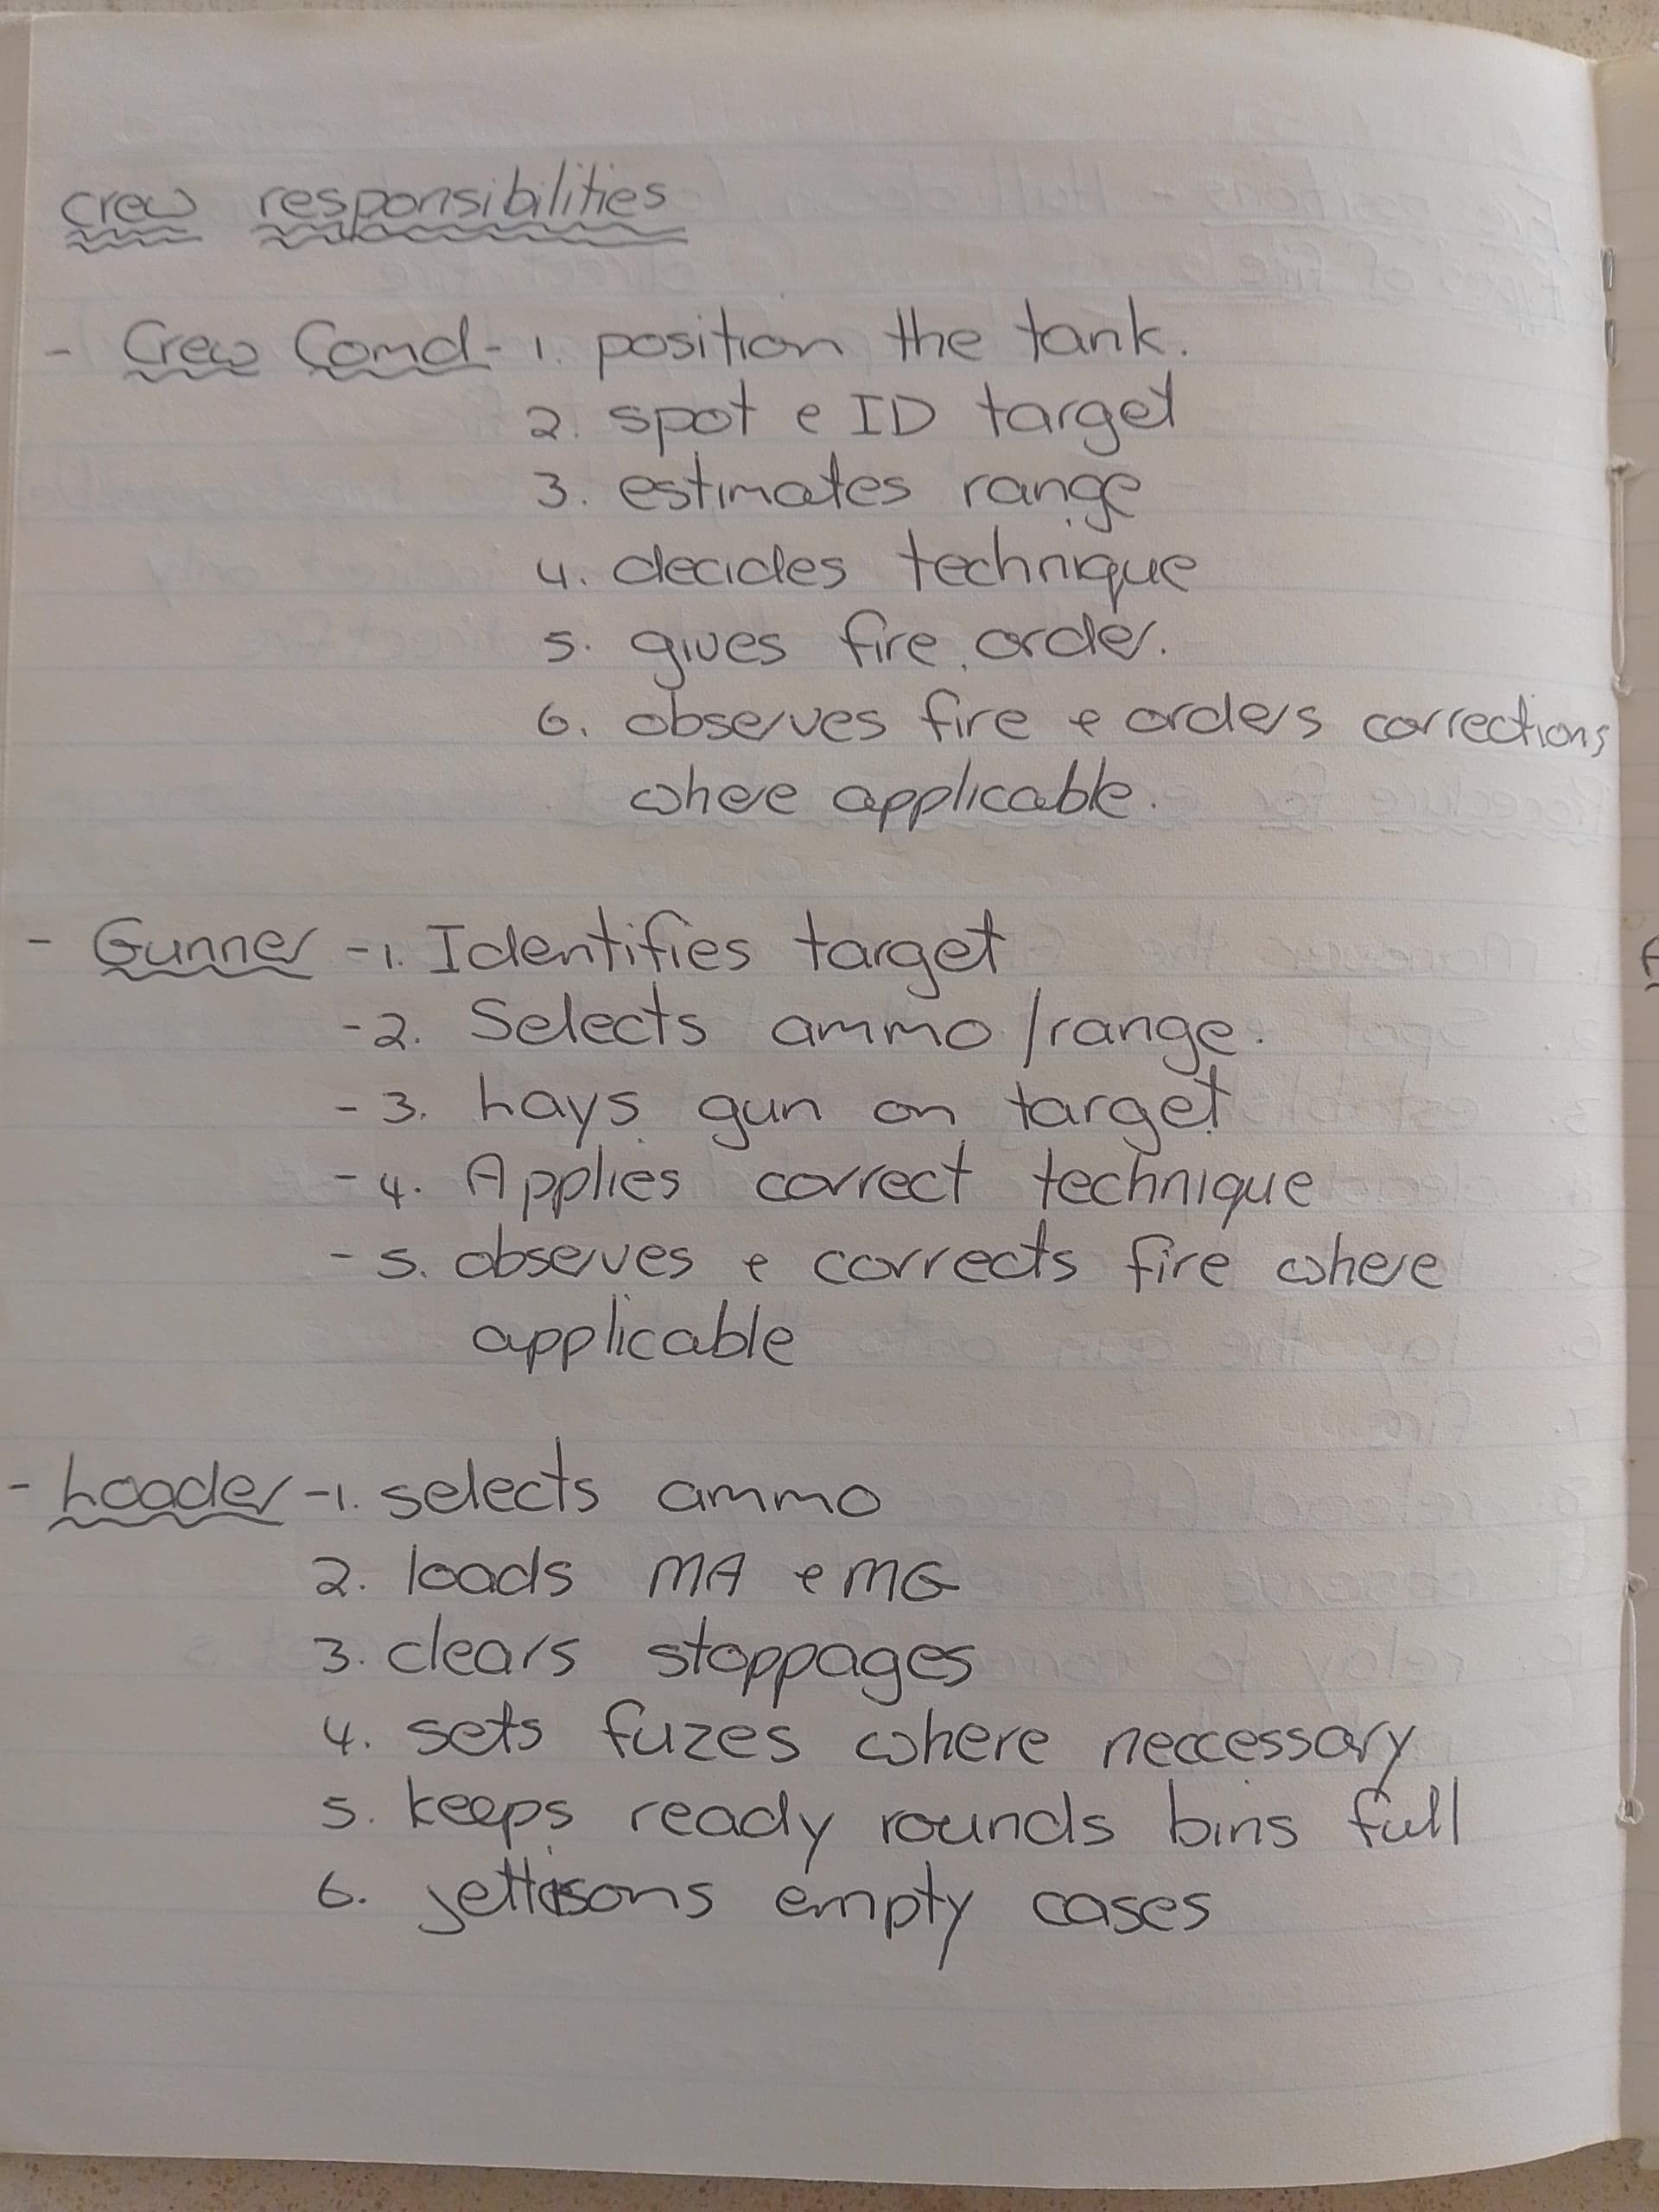 crew responsibilities
- Crew Comd - 1. position the tank.
2. spot e ID target
3. estimates range
4. decides technique
5. gives fire order.
6. observes fire e orders corrections
where applicable.
- Gunner - 1. Identifies target
- 2. Selects ammo/range.
- 3. Lays gun on target
- 4. Applies correct technique
- 5. observes e corrects fire where
applicable
- Loader - 1. selects ammo
2. loads MA e MG
3. clears stoppages
4. sets fuzes where neccessary
5. keeps ready rounds bins full
6. jettisons empty cases